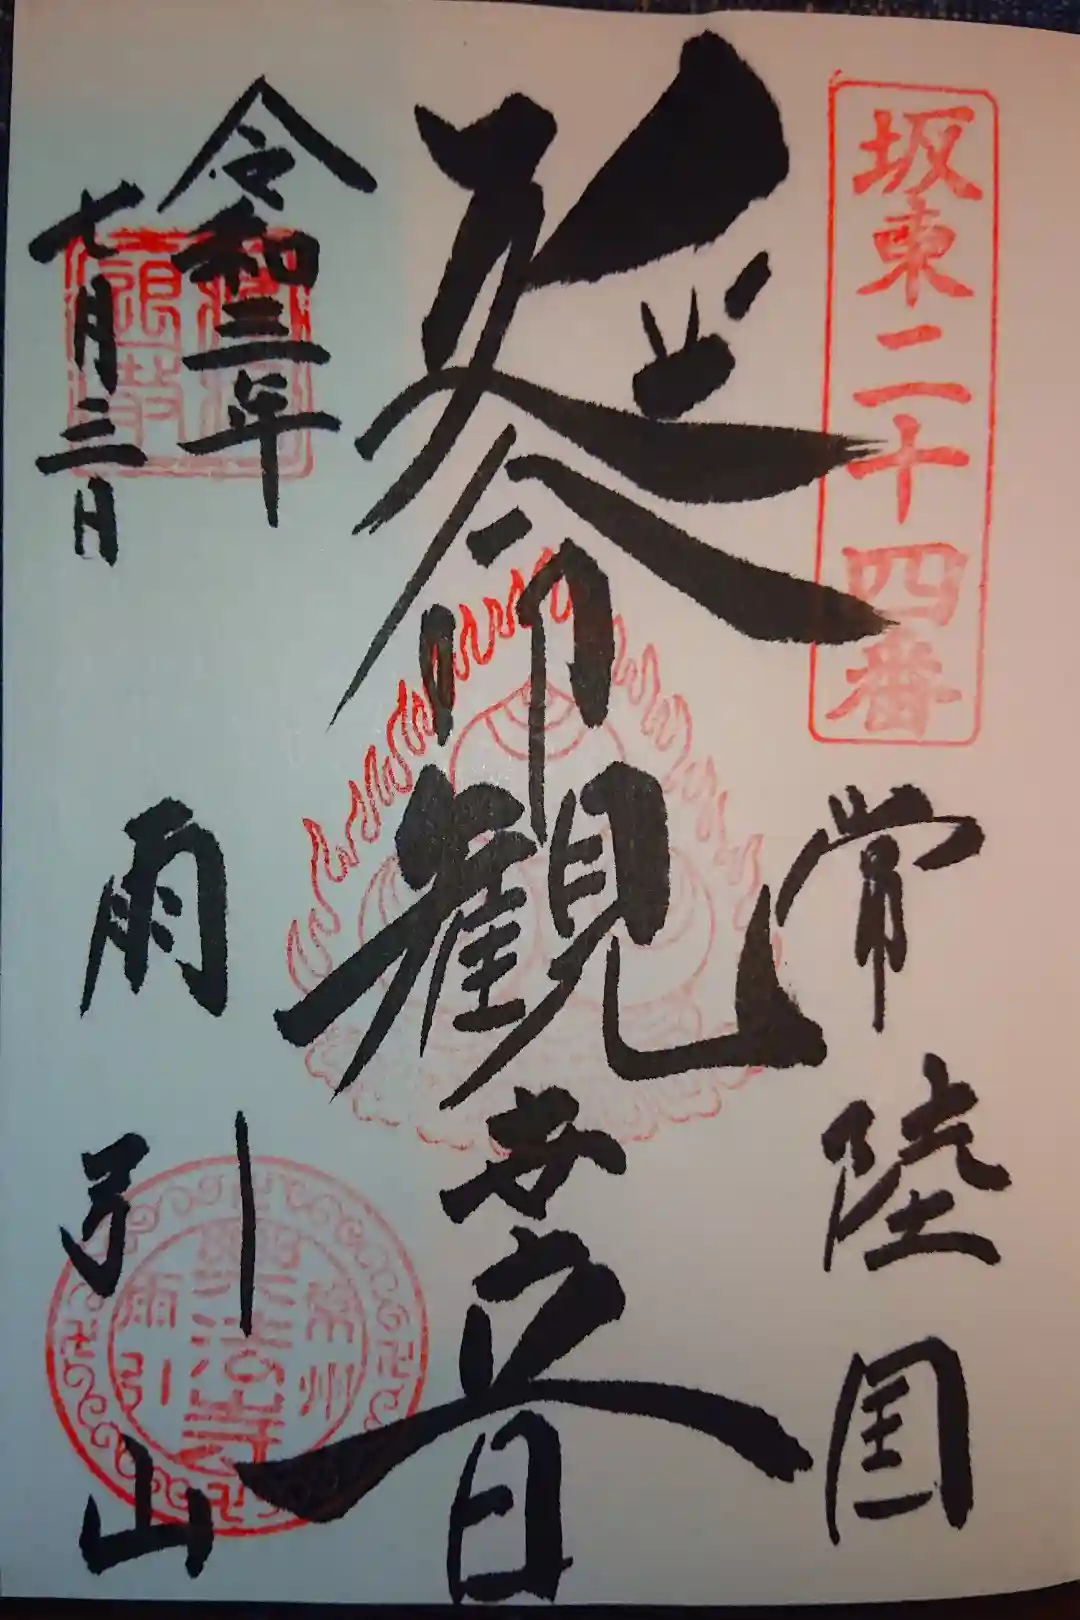 坂東二十四番
常陸国
延命観世音
令和三年
七月三日
雨引山
常州
楽法寺
雨引